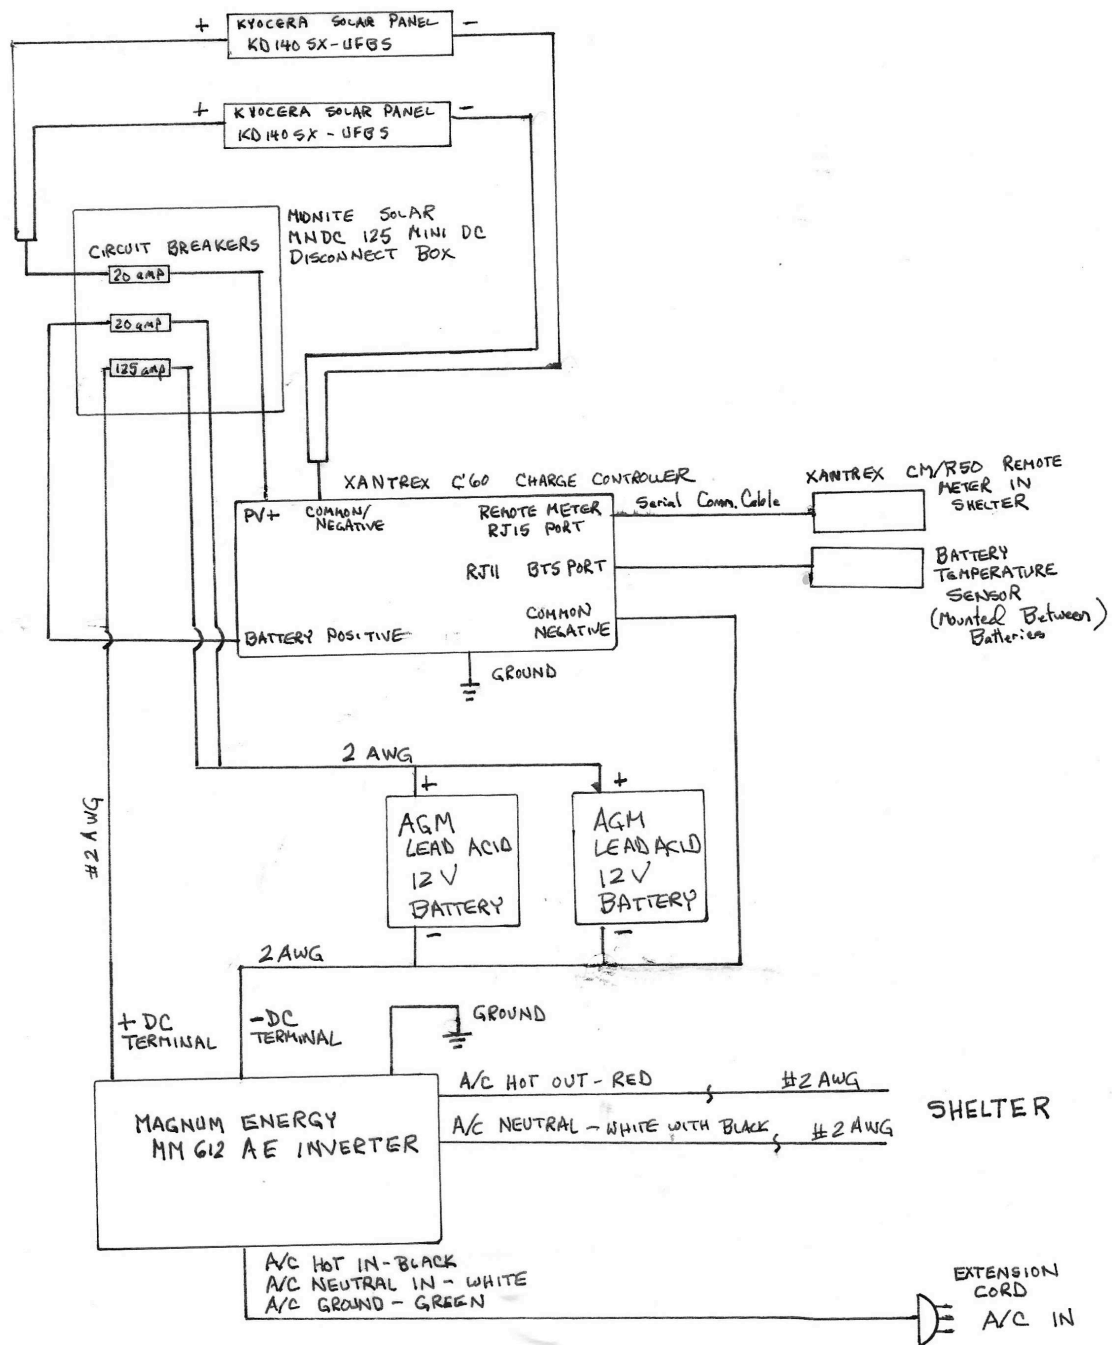 + KYOCERA SOLAR PANEL -
KD140 SX-UFBS
+ KYOCERA SOLAR PANEL -
KD140 SX-UFBS
MIDNITE SOLAR
MNDC 125 MINI DC
DISCONNECT BOX
CIRCUIT BREAKERS
20 amp
20 amp
125 amp
XANTREX C60 CHARGE CONTROLLER
PV+
COMMON/
NEGATIVE
REMOTE METER
RJ15 PORT
RJ11 BTS PORT
COMMON
NEGATIVE
BATTERY POSITIVE
GROUND
Serial Comm. Cable
XANTREX CM/R50 REMOTE
METER IN
SHELTER
BATTERY
TEMPERATURE
SENSOR
(Mounted Between)
Batteries
2 AWG
#2 AWG
+
AGM
LEAD ACID
12 V
BATTERY
-
+
AGM
LEAD ACID
12 V
BATTERY
-
2 AWG
+ DC
TERMINAL
-DC
TERMINAL
GROUND
MAGNUM ENERGY
MM 612 AE INVERTER
A/C HOT OUT - RED
#2 AWG
A/C NEUTRAL - WHITE WITH BLACK
#2 AWG
SHELTER
A/C HOT IN - BLACK
A/C NEUTRAL IN - WHITE
A/C GROUND - GREEN
EXTENSION
CORD
A/C IN